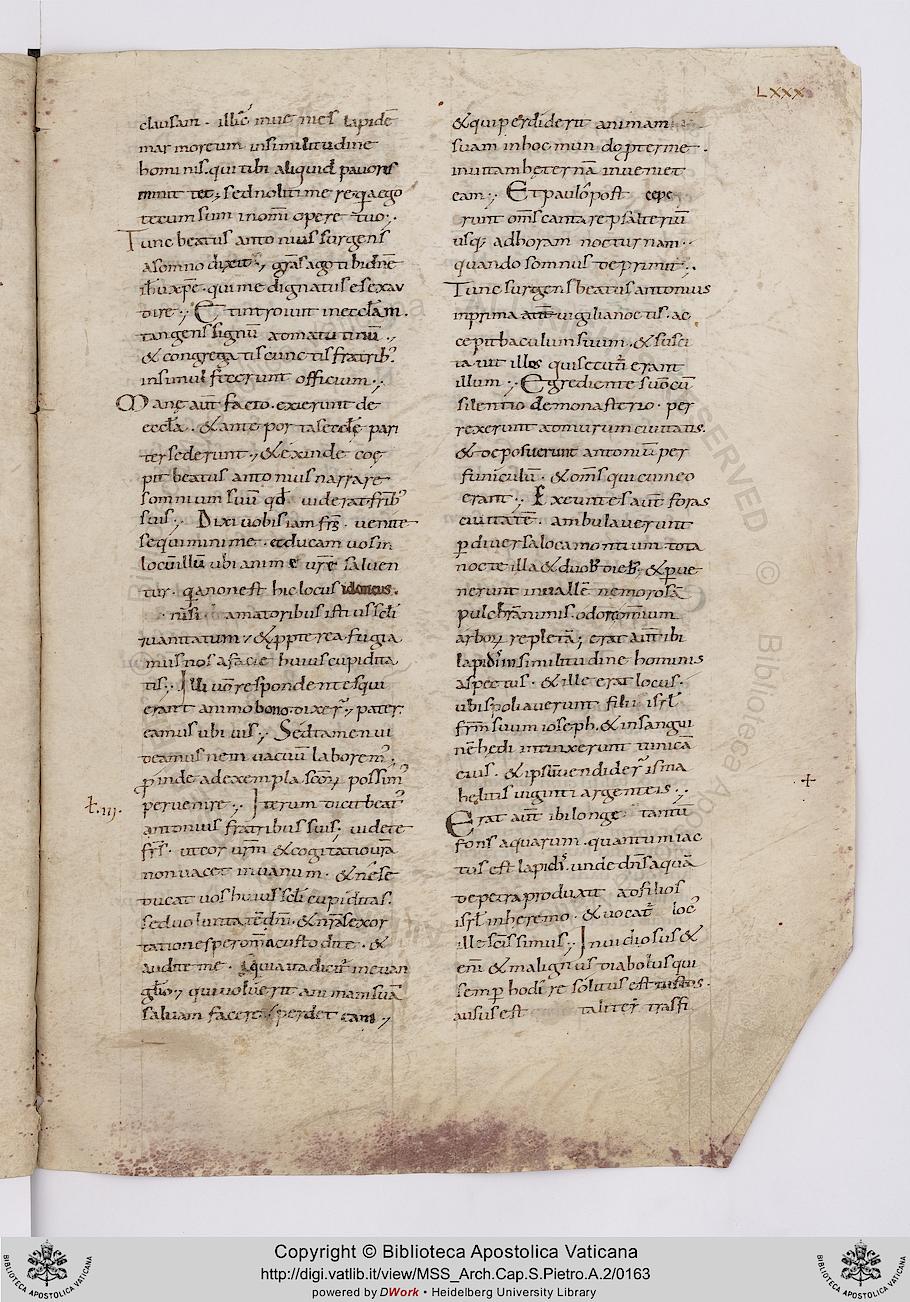 LXXX
clausam. illic̄ inuenies lapidē
marmoreum insimilitudine
hominis. quitibi aliquid pauoris
mittet; sednolitimere. q̄aego
tecumsum inom̄i opere tuo;.
Tunc beatus antonius surgens
asomno dixit; gr̄as ago tibidn̄e
ih̄uxp̄e. quime dignatus es exau
dire;. Et introiuit inecclam.
tangens signū admatutinū.;
& congregatis cunctis fratrib;
insimul fecerunt officium.;
Mane aut̄ facto. exierunt de
eccla. & ante portas ecclę pari
ter sederunt; & exinde coę
pit beatus antonius narrare
somnium suū qd̄ uiderat fr̄ib;
suis;. Dixi uobis iam fr̄s. uenite
sequiminime. etducam uos in
locūillū ubi animę ur̄ę saluen
tur. q̄a non est hic locus idoneus.
nisi amatoribus istius scl̄i
uanitatum; & ꝓpterea fugia
mus nos afacie huius cupidita
tis;. Illi uō respondentes qui
erant animo bono. dixer̄; pater.
eamus ubi uis;. Sed tamen ui
deamus nein uacuū laborem;
ꝓinde adexempla scōꝝ possim;
peruenire;. Iterum dicit beat;
ł.iii.
antonius fratribus suis. uidete
fr̄s. utcor ur̄m & cogitatio ur̄a
non uacet inuanum. & ne se
ducat uos huius scl̄i cupiditas.
sed uoluntatē dn̄i. & nr̄as exor
tationes per om̄a custodite. &
audite me. quia ita dicit̄ ineuan
gl̄io; qui uoluerit animam suā
saluam facere; perdet eam;
& qui perdiderit animam
suam inhoc mundo ꝓpter me.
inuitam ęternā inueniet
eam;. Et paulo post cepe
runt om̄s cantare psalteriū
usq; adhoram nocturnam..
quando somnus deprimit;.
Tunc surgens beatus antonius
inprima aut̄ uigilia noctis. ac
cepit baculum suum. & susci
tauit illos qui secuti erant
illum;. Egrediente suō cū
silentio demonasterio. per
rexerunt admurum ciuitatis.
& deposuerunt antoniū per
funiculū. & om̄s qui cum eo
erant;. Exeuntes aut̄ foras
ciuitatē. ambulauerunt
ꝑ diuersa loca montium tota
nocte illa & duob; dieb; & ꝑue
nerunt inuallē nemorosā
pulchrā nimis. odoreomnium
arboꝝ repletā; erat aut̄ ibi
lapis insimilitudine hominis
aspectus. & ille erat locus.
ubi spoliauerunt filii isr̄l
fr̄m suum ioseph. & insangui
nē hedi intinxerunt tunicā
eius. & ipsū uendider̄ isma
helitis uiginti argenteis.;
Erat aut̄ ibi longe tantū
fons aquarum. quantum iac
tus est lapidis. unde dn̄s aquā
depetra produxit ad filios
isr̄l inheremo. & uocat̄ loc;
ille sc̄issimus;. Inuidiosus &
eni & malignus diabolus qui
semꝑ hodire solitus est iustos.
ausus est taliter trasfi
+
Copyright © Biblioteca Apostolica Vaticana
http://digi.vatlib.it/view/MSS_Arch.Cap.S.Pietro.A.2/0163
powered by DWork • Heidelberg University Library